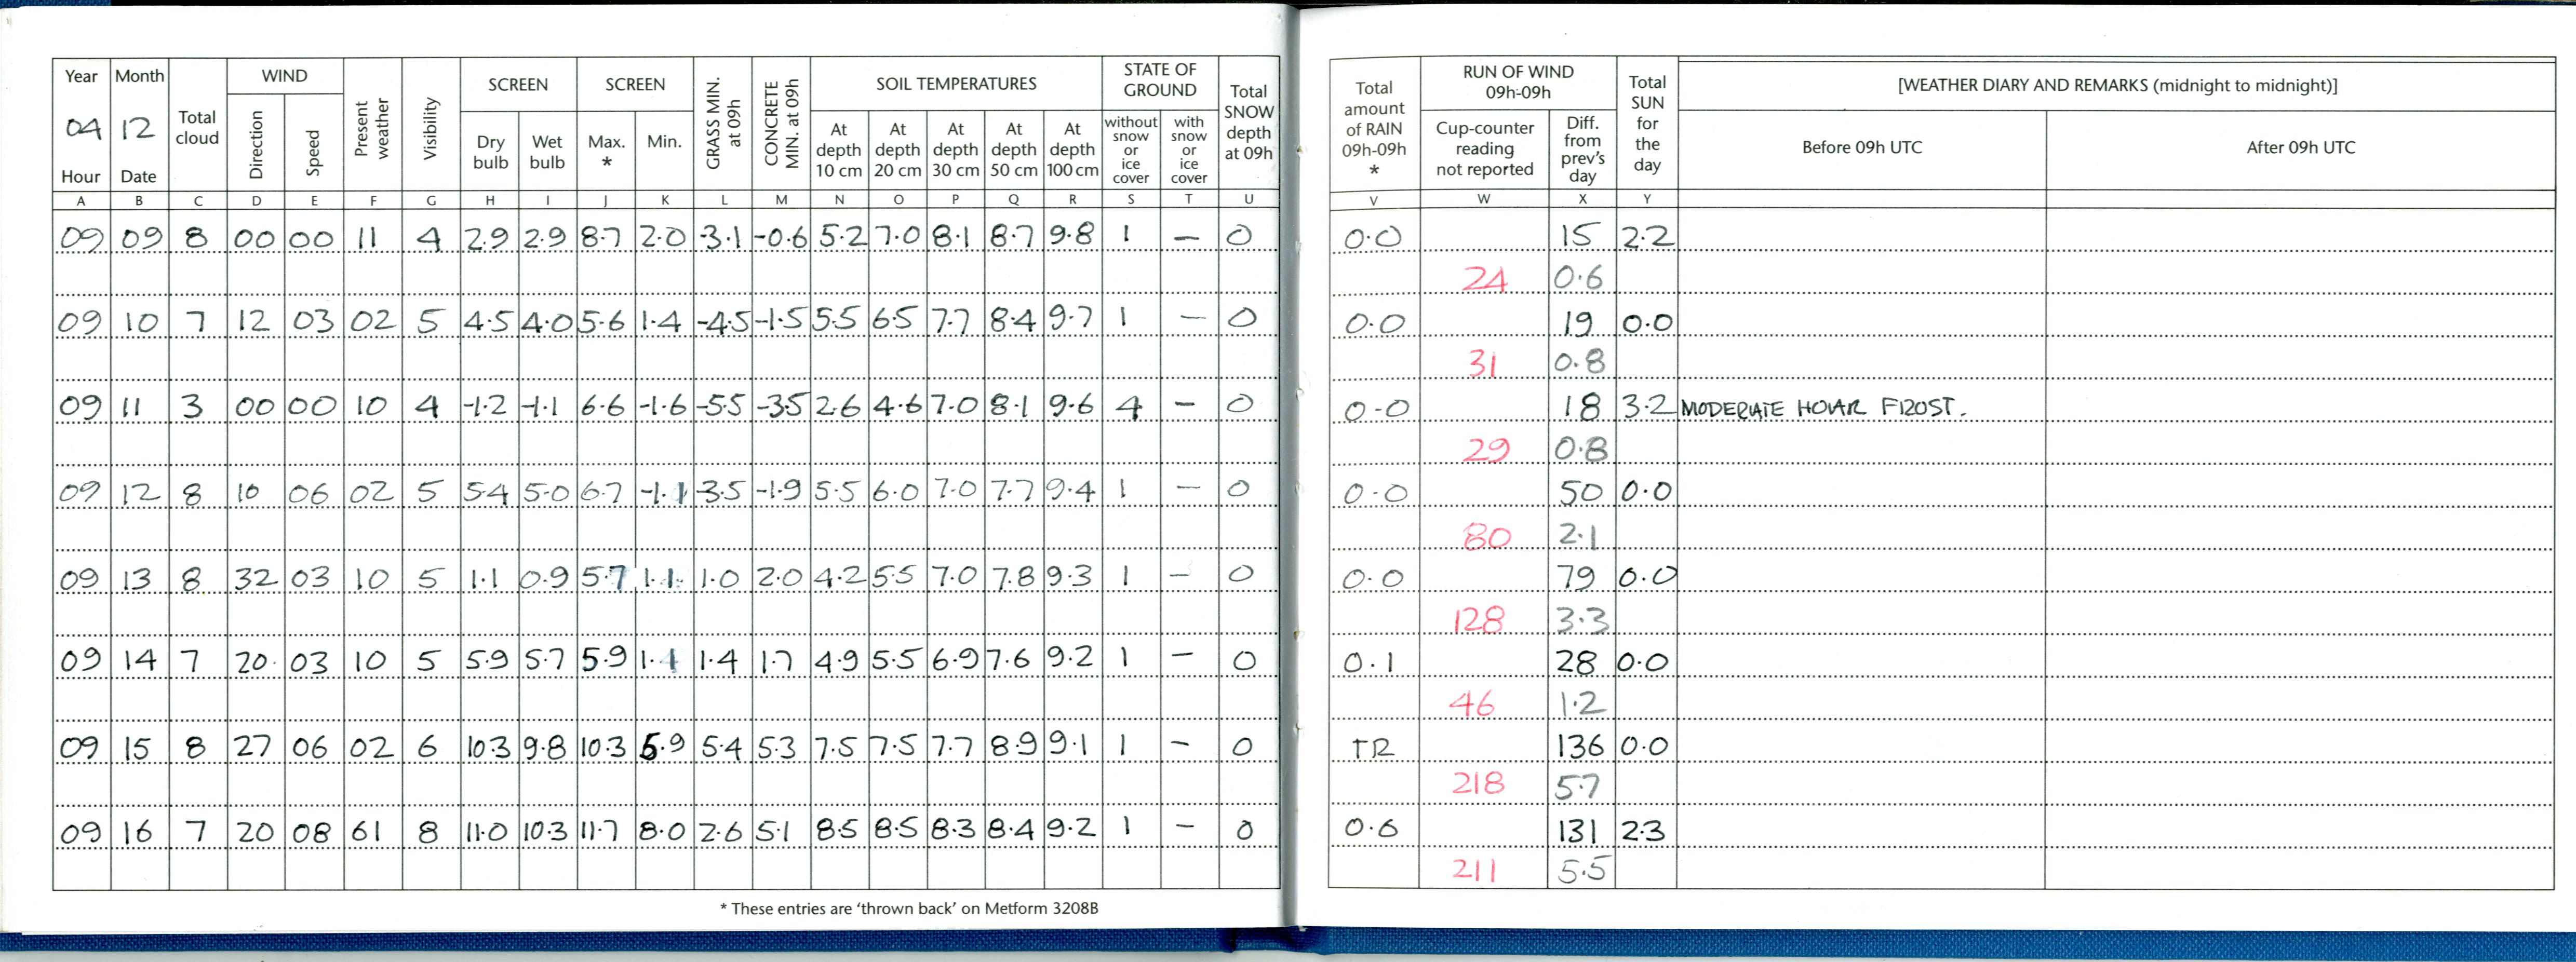 Year Month WIND SCREEN SCREEN SOIL TEMPERATURES STATE OF GROUND
04 12 Total cloud Direction Speed Present weather Visibility Dry bulb Wet bulb Max. * Min. GRASS MIN. at 09h CONCRETE MIN. at 09h At depth 10 cm At depth 20 cm At depth 30 cm At depth 50 cm At depth 100 cm without snow or ice cover with snow or ice cover Total SNOW depth at 09h
Hour Date
A B C D E F G H I J K L M N O P Q R S T U
09 09 8 00 00 11 4 2.9 2.9 8.7 2.0 -3.1 -0.6 5.2 7.0 8.1 8.7 9.8 1 — 0
09 10 7 12 03 02 5 4.5 4.0 5.6 1.4 -4.5 -1.5 5.5 6.5 7.7 8.4 9.7 1 — 0
09 11 3 00 00 10 4 -1.2 -1.1 6.6 -1.6 -5.5 -3.5 2.6 4.6 7.0 8.1 9.6 4 — 0
09 12 8 10 06 02 5 5.4 5.0 6.7 -1.1 -3.5 -1.9 5.5 6.0 7.0 7.7 9.4 1 — 0
09 13 8 32 03 10 5 1.1 0.9 5.7 1.1 1.0 2.0 4.2 5.5 7.0 7.8 9.3 1 — 0
09 14 7 20 03 10 5 5.9 5.7 5.9 1.4 1.7 4.9 5.5 6.9 7.6 9.2 1 — 0
09 15 8 27 06 02 6 10.3 9.8 10.3 5.9 5.4 5.3 7.5 7.5 7.7 8.9 9.1 1 — 0
09 16 7 20 08 61 8 11.0 10.3 11.7 8.0 2.6 5.1 8.5 8.5 8.3 8.4 9.2 1 — 0
* These entries are ‘thrown back’ on Metform 3208B
Total amount of RAIN 09h-09h * RUN OF WIND 09h-09h Total SUN for the day [WEATHER DIARY AND REMARKS (midnight to midnight)]
Cup-counter reading not reported Diff. from prev's day Before 09h UTC After 09h UTC
V W X Y
0.0 15 2.2
24 0.6
0.0 19 0.0
31 0.8
0.0 18 3.2 MODERATE HOAR FROST.
29 0.8
0.0 50 0.0
80 2.1
0.0 79 0.0
128 3.3
0.1 28 0.0
46 1.2
TR 136 0.0
218 5.7
0.6 131 2.3
211 5.5